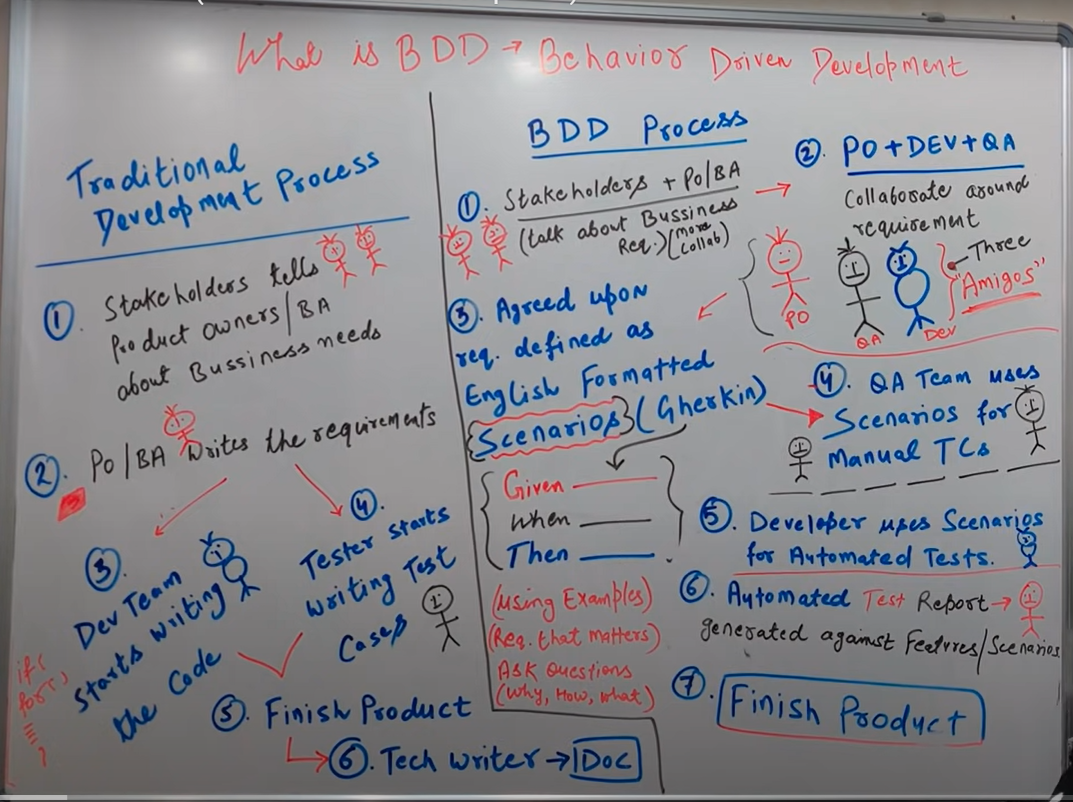 What is BDD → Behavior Driven Development
Traditional
Development Process
①. Stakeholders tells
Product owners/BA
about Bussiness needs
②. PO/BA Writes the requirements
③.
Dev Team
Starts writing
the Code
④.
Tester starts
writing Test
Cases
if(
for( )
⑤. Finish Product
⑥. Tech writer → Doc
BDD Process
①. Stakeholders + PO/BA
(talk about Bussiness
Req.) (more
Collab)
②. PO+DEV+QA
Collaborate around
requirement
Three
"Amigos"
PO
QA
Dev
③. Agreed upon
req. defined as
English Formatted
Scenarios (Gherkin)
Given
When
Then
(using Examples)
(Req. that matters)
Ask Questions
(Why, How, what)
④. QA Team uses
Scenarios for
Manual TCs
⑤. Developer uses Scenarios
for Automated Tests.
⑥. Automated Test Report →
generated against Features/Scenarios
⑦. Finish Product